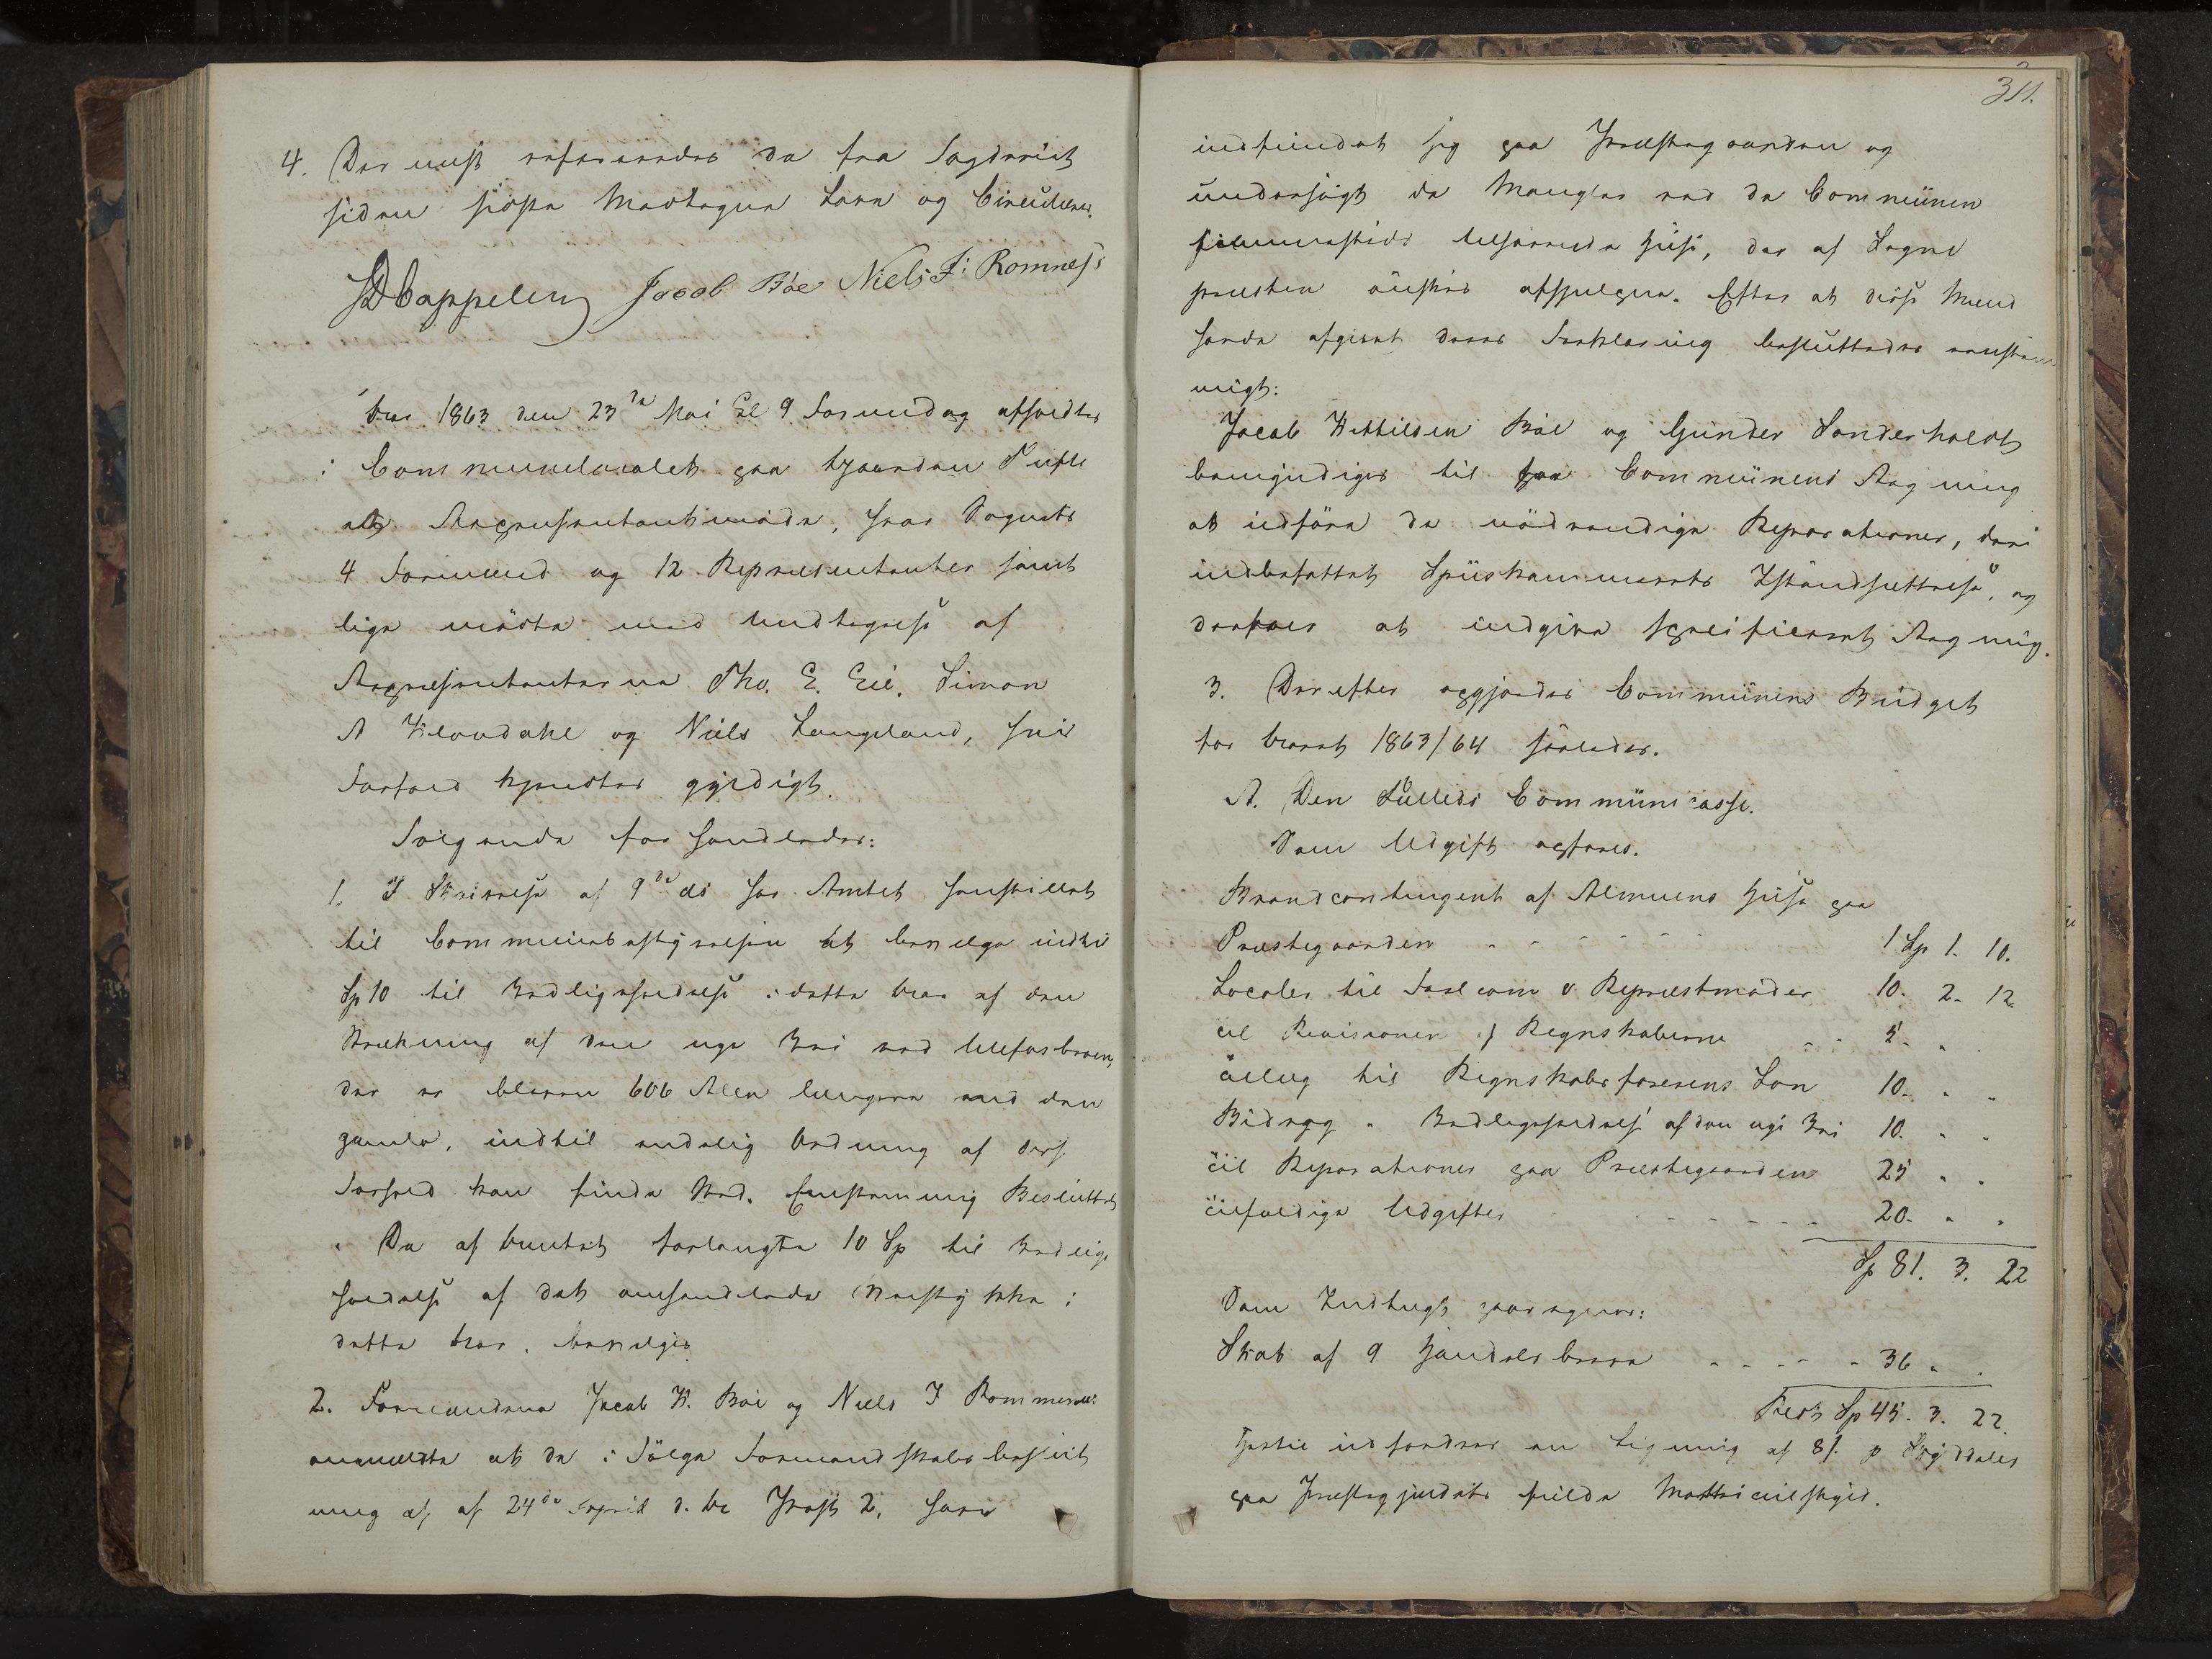 4. Der næst refereredes de fra Fogderiet
siden sidste modtagne Love og Circulærer.
D Cappelen Jacob Bøe Niels J: Romnes
Aar 1863 den 23de Mai Kl 9 Formidag afholdtes
i Communelocalet paa Gaarden Tufte
et Repræsentantmøde, hvor Sognets
4 Formænd og 12 Repræsentanter samt
lige mødte med Undtagelse af
Repræsentanterne Tho. E. Eie, Simon
A Klovdahl og Niels Langeland, hvis
Forfald kjendtes gyldigt.
Følgende forhandledes:
1. I Skrivelse af 9de ds har Amtet henstillet
til Communebestyrelsen at bevilge indtil
Sp 10 til Vedligeholdelse i dette Aar af den
Strækning af den nye Vei ved Ulefosbroen,
der er bleven 606 Alen længere end den
gamle, indtil endelig Ordning af dens
Forhold kan finde Sted. Enstemmig Besluttet
De af Amtet forlangte 10 Sp til Vedlige
holdelse af det omhandlede Veistykke i
dette Aar, bevilges
2. Formændene Jacob K. Bøe og Niels J Romnes
anmeldte at de i Følge Formandskabsbeslut
ning af 24de April d. A. Post 2, havde
311.
indfundet sig paa Præstegaarden og
undersøgt de Mangler ved de Communen
tilhørende Huse, der af Sogne
præsten ønskes afhjulpne. Efter at disse Mænd
havde afgivet deres Forklaring besluttedes eenstem
migt:
Jacob Kittilsen Bøe og Gunder Sonderholdt
bemyndiges til for Communens Regning
at udføre de nødvendige Reparationer, deri
indbefattet Spiiskammerets Istandsættelse, og
derover at indgive specificeret Regning.
3. Derefter opgjordes Communens Budget
for Aaret 1863/64 saaledes.
A. Den Fælleds Communecasse.
Som Udgift opføres.
Brandcontingent af Almuens Huse paa
Præstegaarden 1 Sp 1. 10.
Locale til Forlcom & Repræstmøder 10. 2. 12.
til Revisionen af Regnskaberne 5.
Tillæg til Regnskabsførerens Løn 10.
Bidrag " Vedligeholdelse af den nye Vei 10.
til Reparationer paa Præstegaarden 25
tilfældige Udgifter 20.
Sp 81. 3. 22
Som Indtægt paaregnes:
Skat af 9 Handelsborgere 36
Rest Sp 45. 3. 22.
Hertil udfordres en Ligning af 8/. pr Skylddaler
paa Præstegjeldets fulde Matriculskyld.